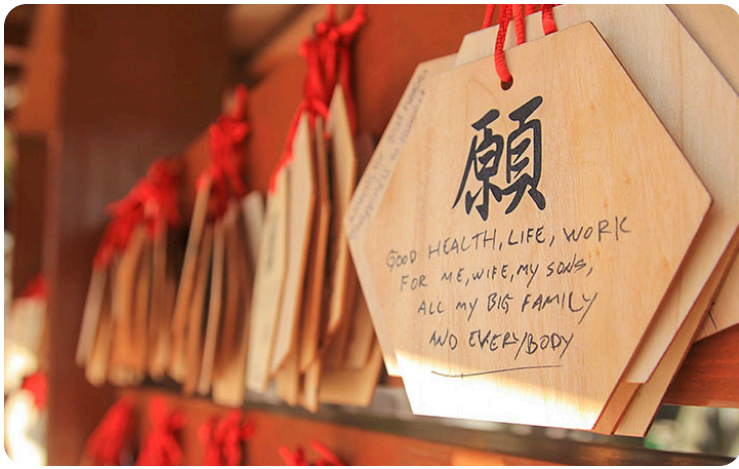 願
GOOD HEALTH, LIFE, WORK
FOR ME, WIFE, MY SONS,
ALL MY BIG FAMILY
AND EVERYBODY